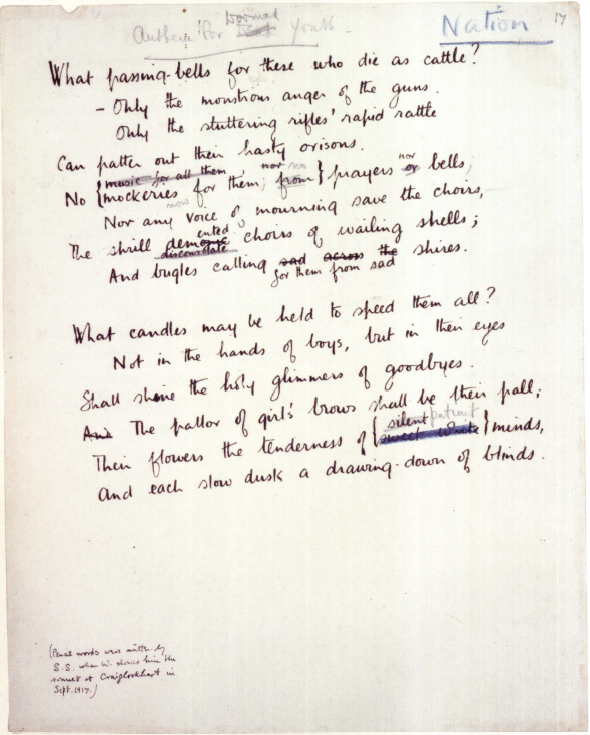 Anthem for Dead Youth
Doomed
Nation
17
What passing-bells for these who die as cattle?
– Only the monstrous anger of the guns.
Only the stuttering rifles' rapid rattle
Can patter out their hasty orisons.
music for all them, nor no
No { mockeries for them; from } prayers or bells,
nor
now
Nor any voice of mourning save the choirs,–
ented
The shrill demonic choirs of wailing shells;
disconsolate
And bugles calling sad across the shires.
for them from sad
What candles may be held to speed them all?
Not in the hands of boys, but in their eyes
Shall shine the holy glimmers of goodbyes.
And The pallor of girls' brows shall be their pall;
silent patient
Their flowers the tenderness of { sweet white } minds,
And each slow dusk a drawing-down of blinds.
(Pencil words were written by
S.S. when W. showed him the
sonnet at Craiglockhart in
Sept. 1917.)